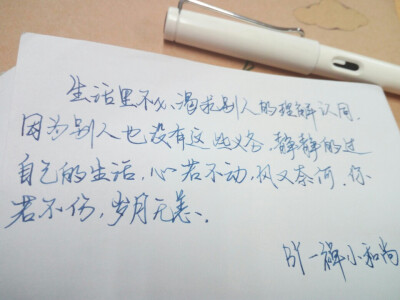 生活里不必渴求别人的理解认同.
因为别人也没有这些义务.静静的过
自己的生活.心若不动.风又奈何.你
若不伤,岁月无恙、
BY 一禅小和尚